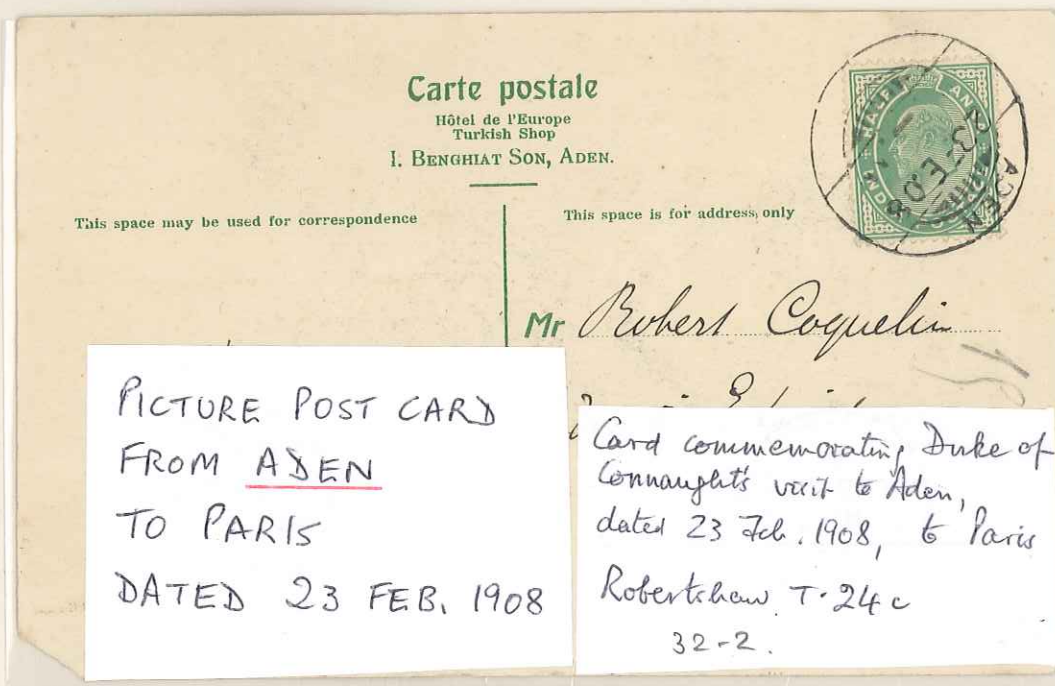 Carte postale
Hôtel de l'Europe
Turkish Shop
I. BENGHIAT SON, ADEN.
This space may be used for correspondence
This space is for address only
INDIA
HALF AN
ADEN
23 FE 08
Mr Robert Coquelin
PICTURE POST CARD
FROM ADEN
TO PARIS
DATED 23 FEB. 1908
Card commemorating Duke of
Connaught's visit to Aden,
dated 23 Feb. 1908, to Paris
Robertshaw T.24c
32-2.